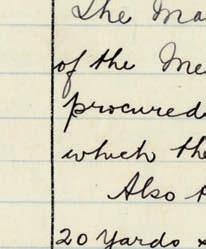 The Ma
of the Me
procured
which the
Also t
20 Yards